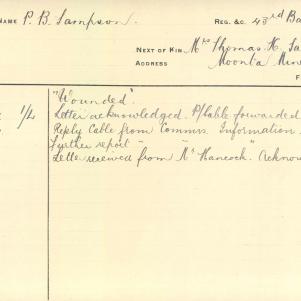 NAME P. B. Sampson REG. &C. 43rd Ba
NEXT OF KIN Mrs Thomas H. Sa
ADDRESS Moonta Min
F
1/4 "Wounded".
Letter acknowledged. P/Cable forwarded
Reply Cable from Comms. Information
Further report " "
Letter received from "Mr Hancock". Acknow